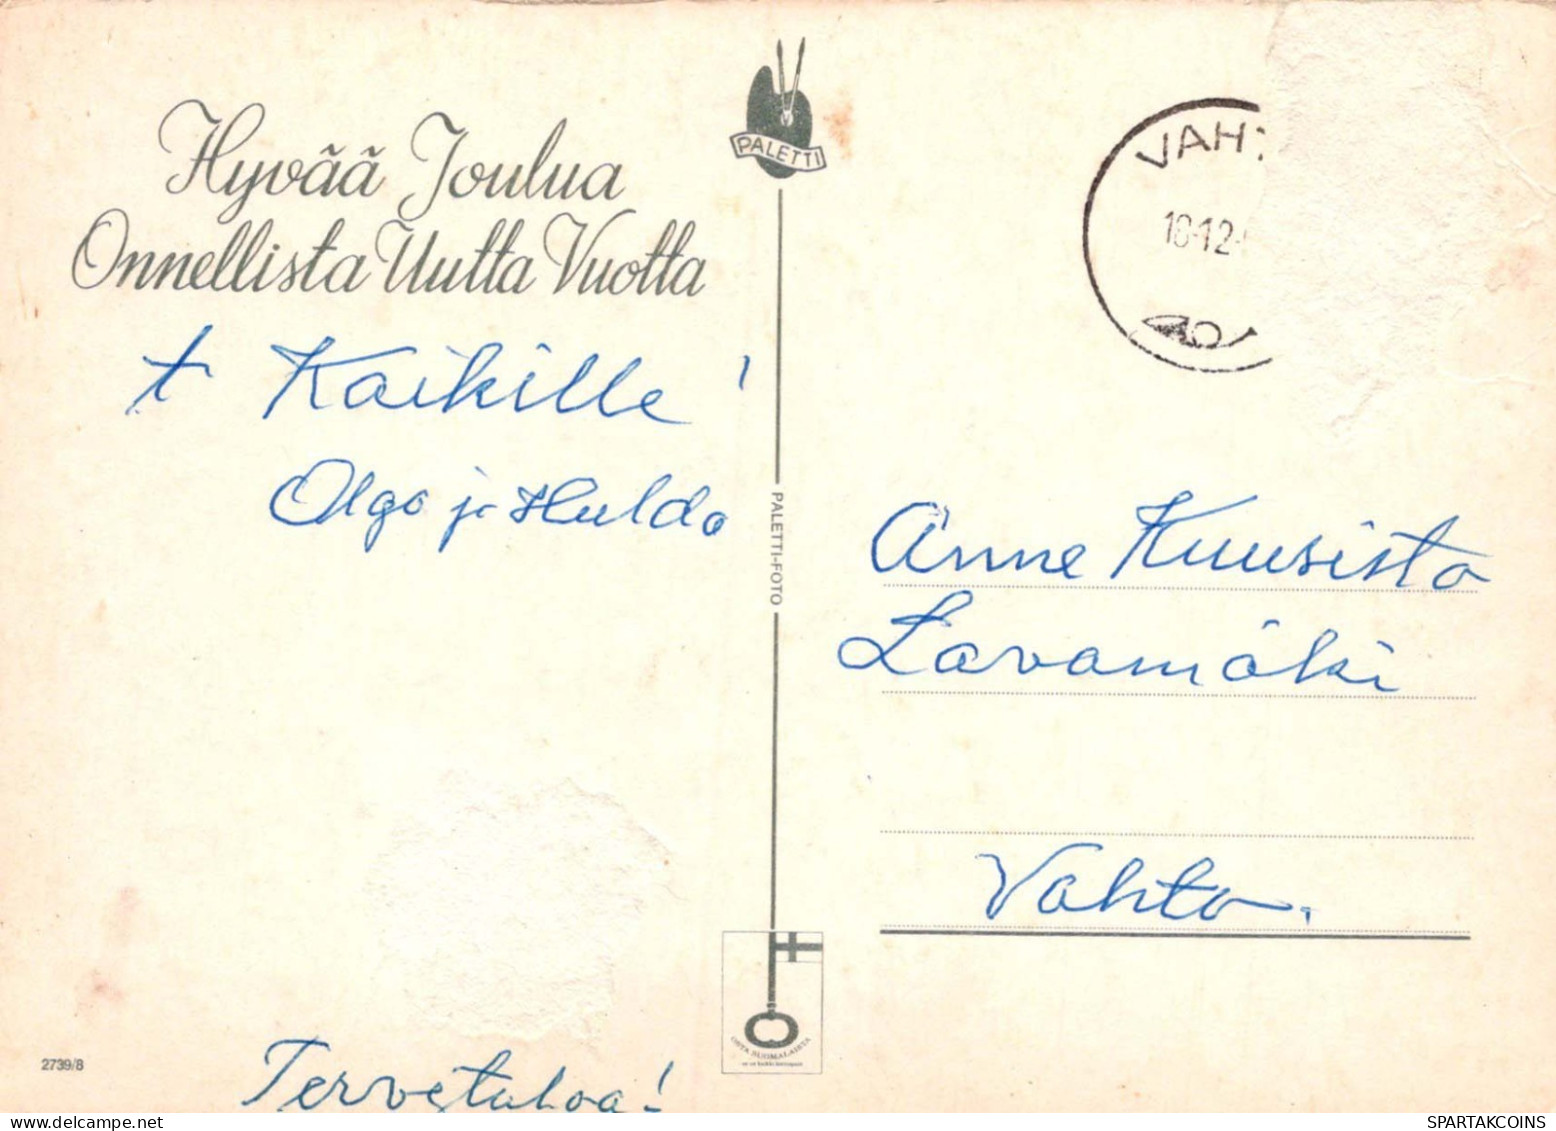 Hyvää Joulua
Onnellista Uutta Vuotta
t Kaikille!
Olga ja Hulda
Tervetuloa!
2739/8
PALETTI
PALETTI-FOTO
OSTA SUOMALAISTA
VAHT
18.12.
Anne Kuusisto
Lavamäki
Vahto.
SPARTAKCOINS